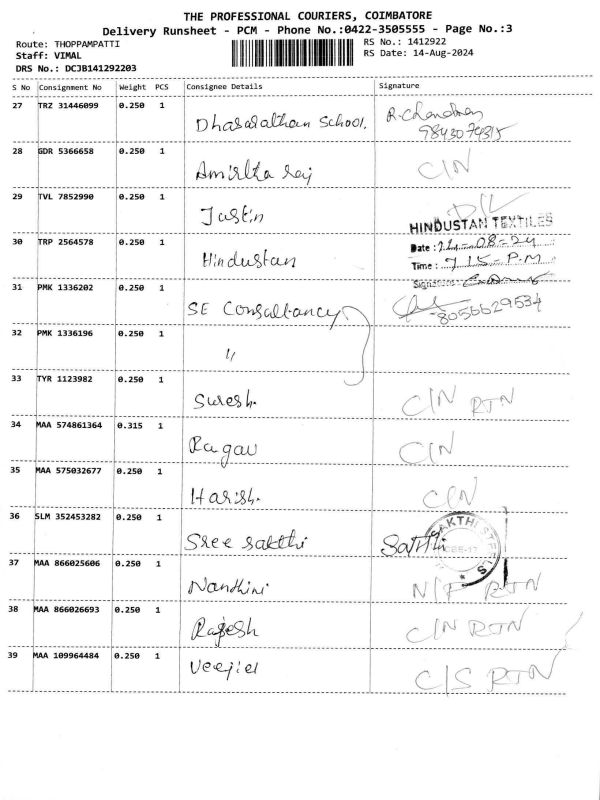 THE PROFESSIONAL COURIERS, COIMBATORE
Delivery Runsheet - PCM - Phone No.:0422-3505555 - Page No.:3
Route: THOPPAMPATTI RS No.: 1412922
Staff: VIMAL RS Date: 14-Aug-2024
DRS No.: DCJB141292203
S No Consignment No Weight PCS Consignee Details Signature
27 TRZ 31446099 0.250 1 Dhasarathan School. R.Chandran
9843074315
28 GDR 5366658 0.250 1 Amirtha raj C/N
29 TVL 7852990 0.250 1 Justin D/L
HINDUSTAN TEXTILES
30 TRP 2564578 0.250 1 Hindustan Date : 14-08-24
Time : 7 15-P.M
Signature:
31 PMK 1336202 0.250 1 SE Consultancy 8056629534
32 PMK 1336196 0.250 1 "
33 TYR 1123982 0.250 1 Suresh. C/N RTN
34 MAA 574861364 0.315 1 Ragav C/N
35 MAA 575032677 0.250 1 Harish. C/N
36 SLM 352453282 0.250 1 Sree sakthi Sakthi
SAKTHI STEELS
37 MAA 866025606 0.250 1 Nandhini N/F RTN
38 MAA 866026693 0.250 1 Rajesh C/N RTN
39 MAA 109964484 0.250 1 Veejiel C/S RTN